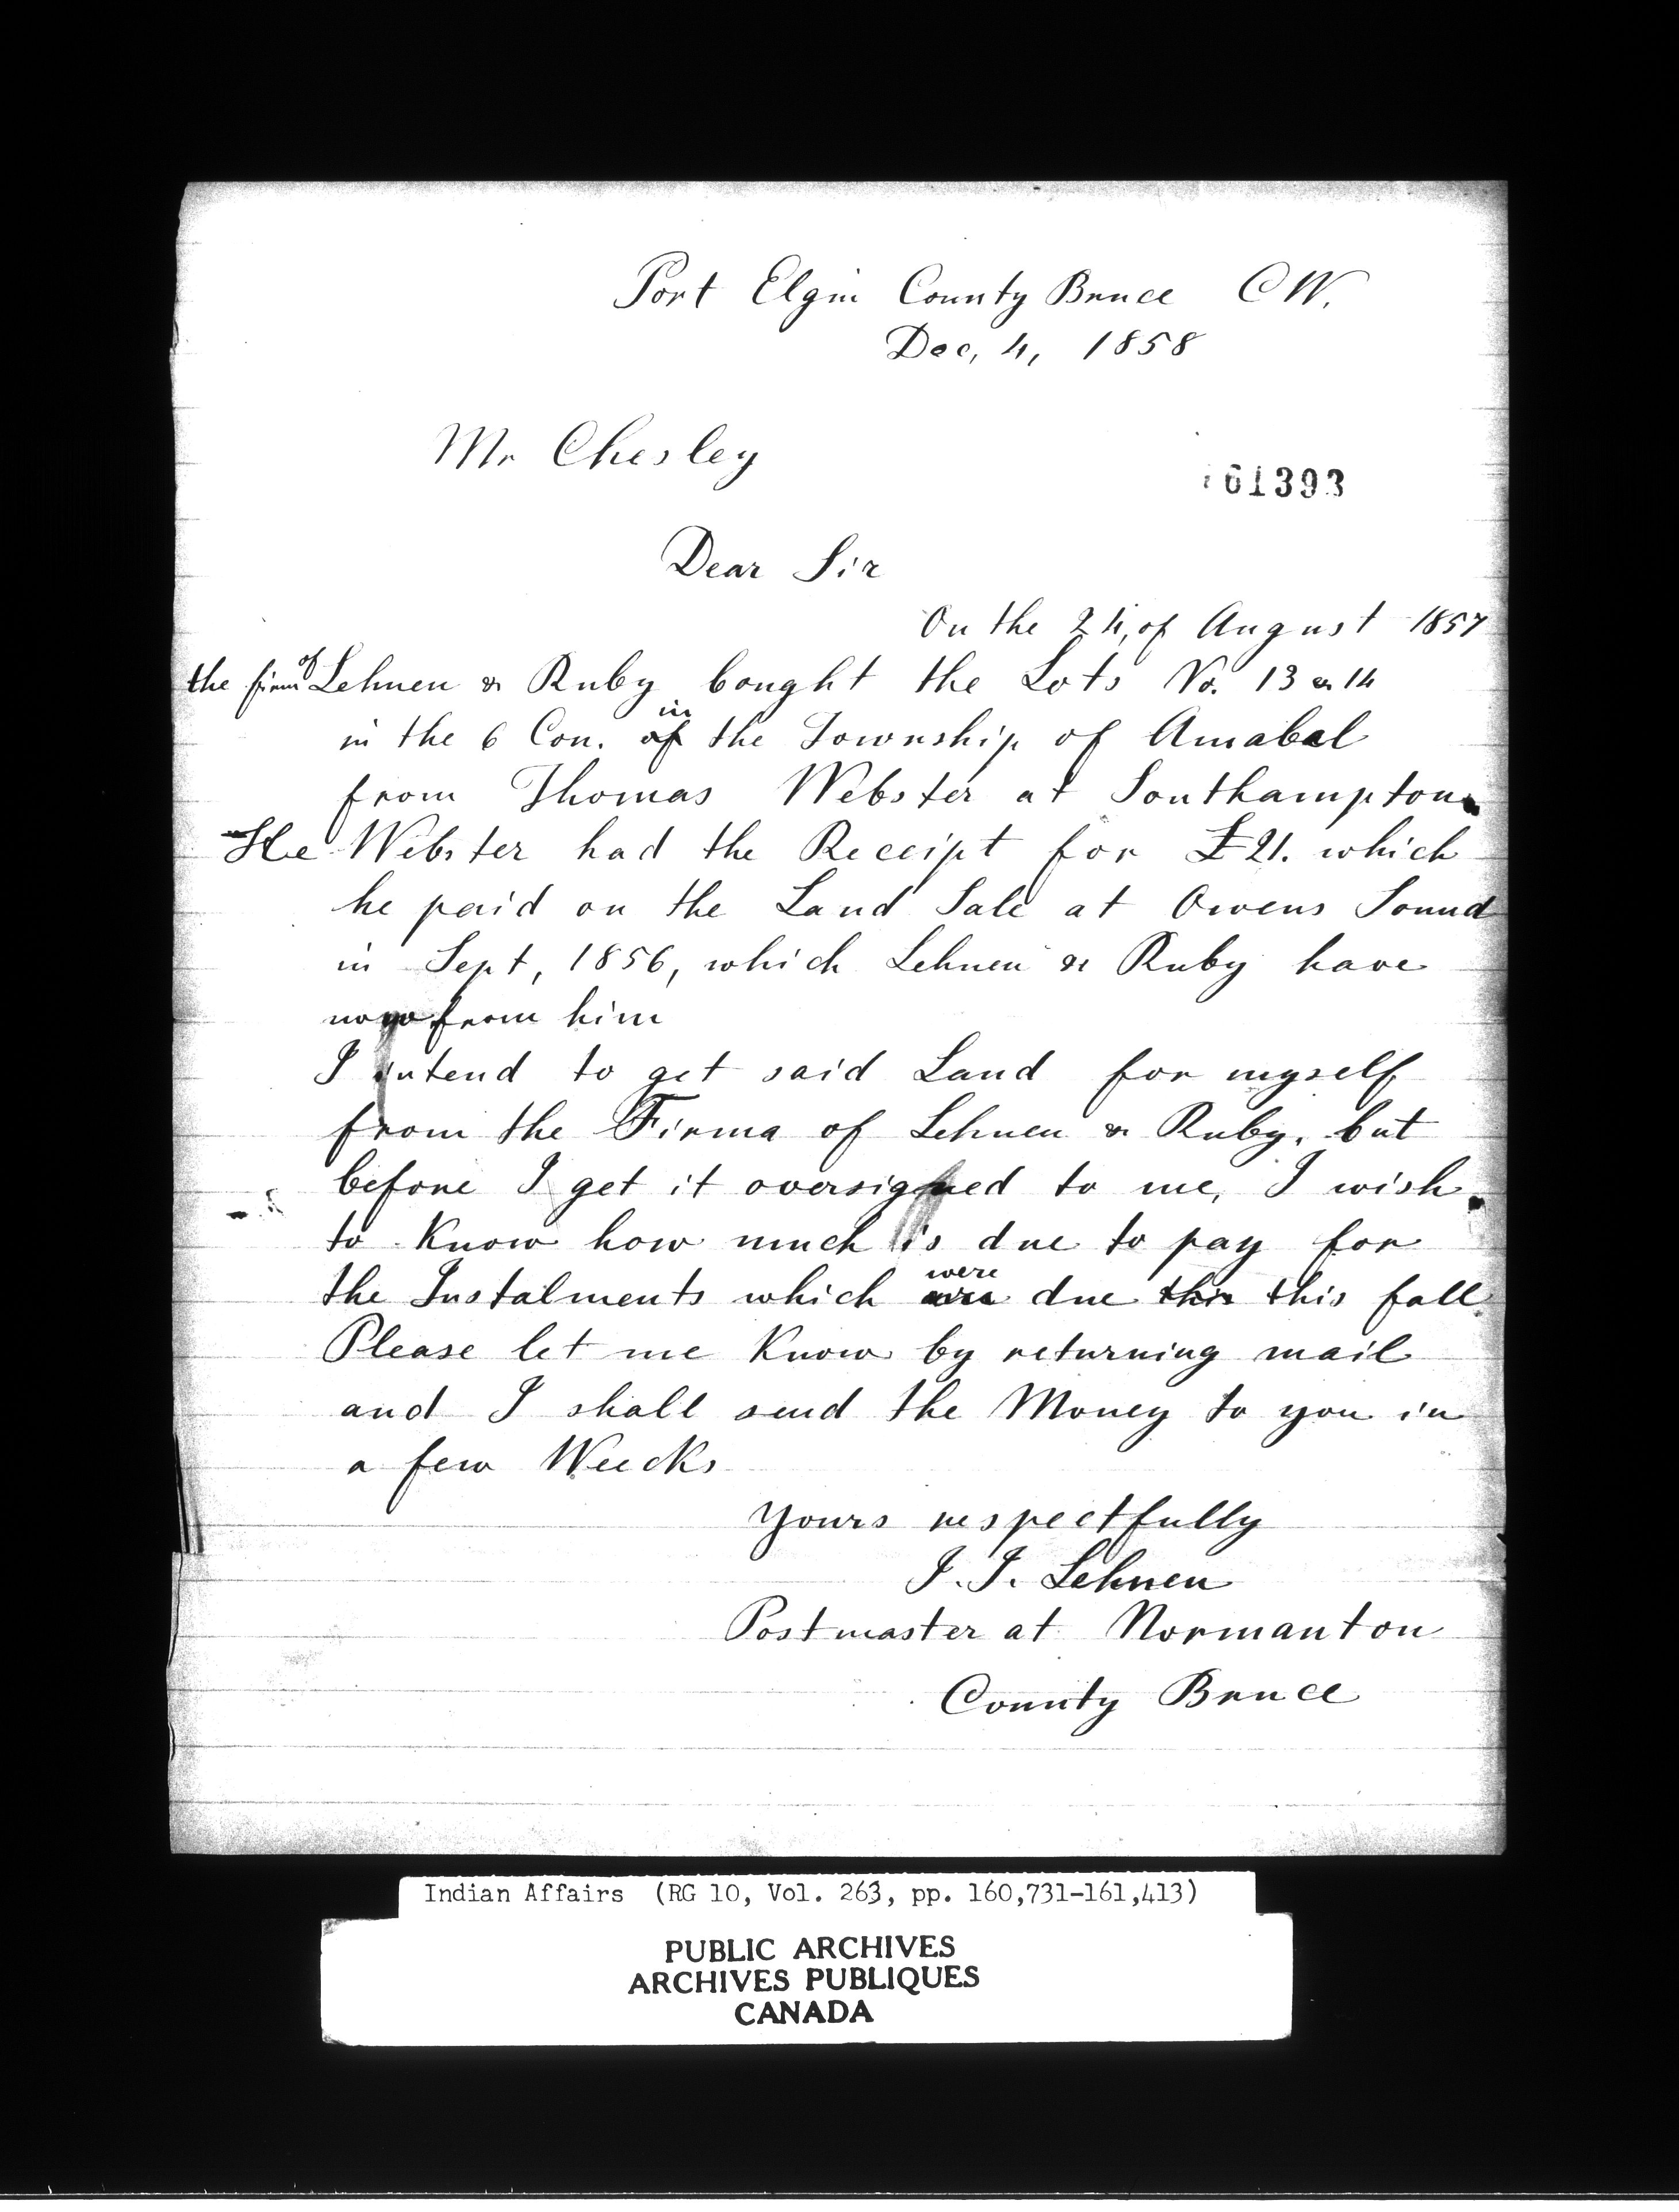 Port Elgin County Bruce C W.
Dec, 4, 1858
Mr Chesley
161393
Dear Sir
On the 24, of August 1857
the firm of Lehnen & Ruby bought the Lots No. 13 & 14
in the 6 Con. of in the Township of Amabel
from Thomas Webster at Southampton
He Webster had the Receipt for £21. which
he paid on the Land Sale at Owens Sound
in Sept, 1856, which Lehnen & Ruby have
now from him
I intend to get said Land for myself
from the Firma of Lehnen & Ruby, but
before I get it oversigned to me, I wish
to Know how much is due to pay for
the Instalments which are were due this this fall
Please let me Know by returning mail
and I shall send the Money to you in
a few Weeks
Yours respectfully
J. J. Lehnen
Postmaster at Normanton
County Bruce
Indian Affairs (RG 10, Vol. 263, pp. 160,731-161,413)
PUBLIC ARCHIVES
ARCHIVES PUBLIQUES
CANADA